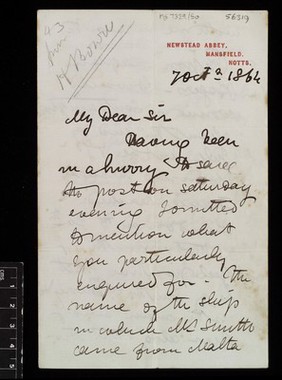 56319
NEWSTEAD ABBEY,
MANSFIELD,
NOTTS.
7 Oct 1864
My Dear Sir
Having been
in a hurry to save
the post on Saturday
evening I omitted
to mention what
you particularly
enquired for - The
name of the ship
in which Mr Smith
came from Malta